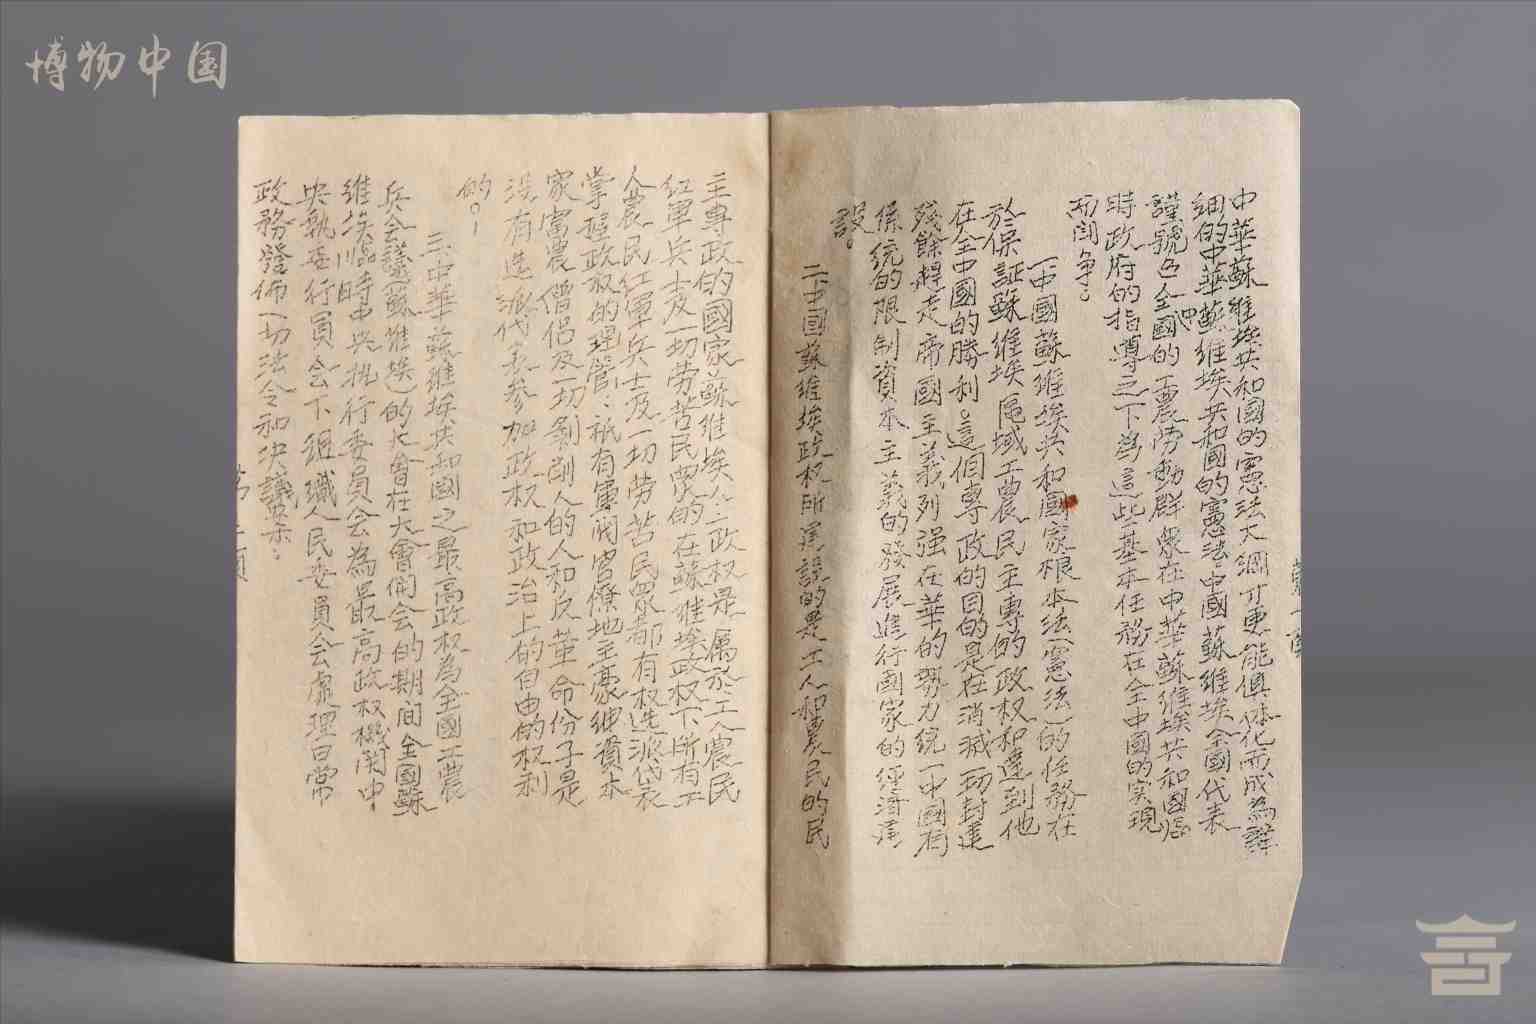 博物中国
中華蘇維埃共和國的憲法大綱才更能俱体化而成為詳
細的中華蘇維埃共和國的憲法：中國蘇維埃全國代表
謹號召全國的工農勞動群衆在中華蘇維埃共和國臨
中
時政府的指導之下為這些基本任務在全中國的实現
而閗争：
一、中國蘇維埃共和國家根本法（憲法）的任務在
於保証蘇維埃區域工農民主專的政权和達到他
在全中國的勝利。這個專政的目的是在消滅一切封建
殘餘趕走帝國主義列强在華的勢力統一中國有
係統的限制資本主義的發展進行國家的經濟建
設。
二、中國蘇維埃政权所建設的是工人和農民的民
主專政的國家，蘇維埃全政权是屬於工人農民
紅軍兵士及一切劳苦民衆的在蘇維埃政权下所有工
人農民紅軍兵士及一切劳苦民眾都有权选派代表
掌握政权的理管：祇有軍阀官僚地主豪紳資本
家富農僧侣及一切剝削人的人和反革命份子是
没有选派代表參加政权和政治上的自由的权利
的。
三、中華蘇維埃共和國之最高政权為全國工農
兵会議（蘇維埃）的大會在大會閉会的期间全國蘇
維埃臨時中央执行委員会為最高政权機関中
央執委行員会下組織人民委員会處理日常
政務發佈一切法令和决議案：